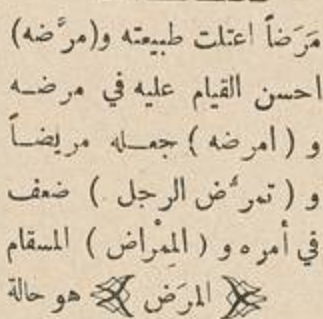 مَرَضاً اعتلت طبيعته و(مرَّضه)
احسن القيام عليه في مرضه
و ( امرضه ) جعله مريضاً
و ( تمرَّض الرجل ) ضعف
في أمره و ( المِمْراض ) المسقام
المرَض هو حالة